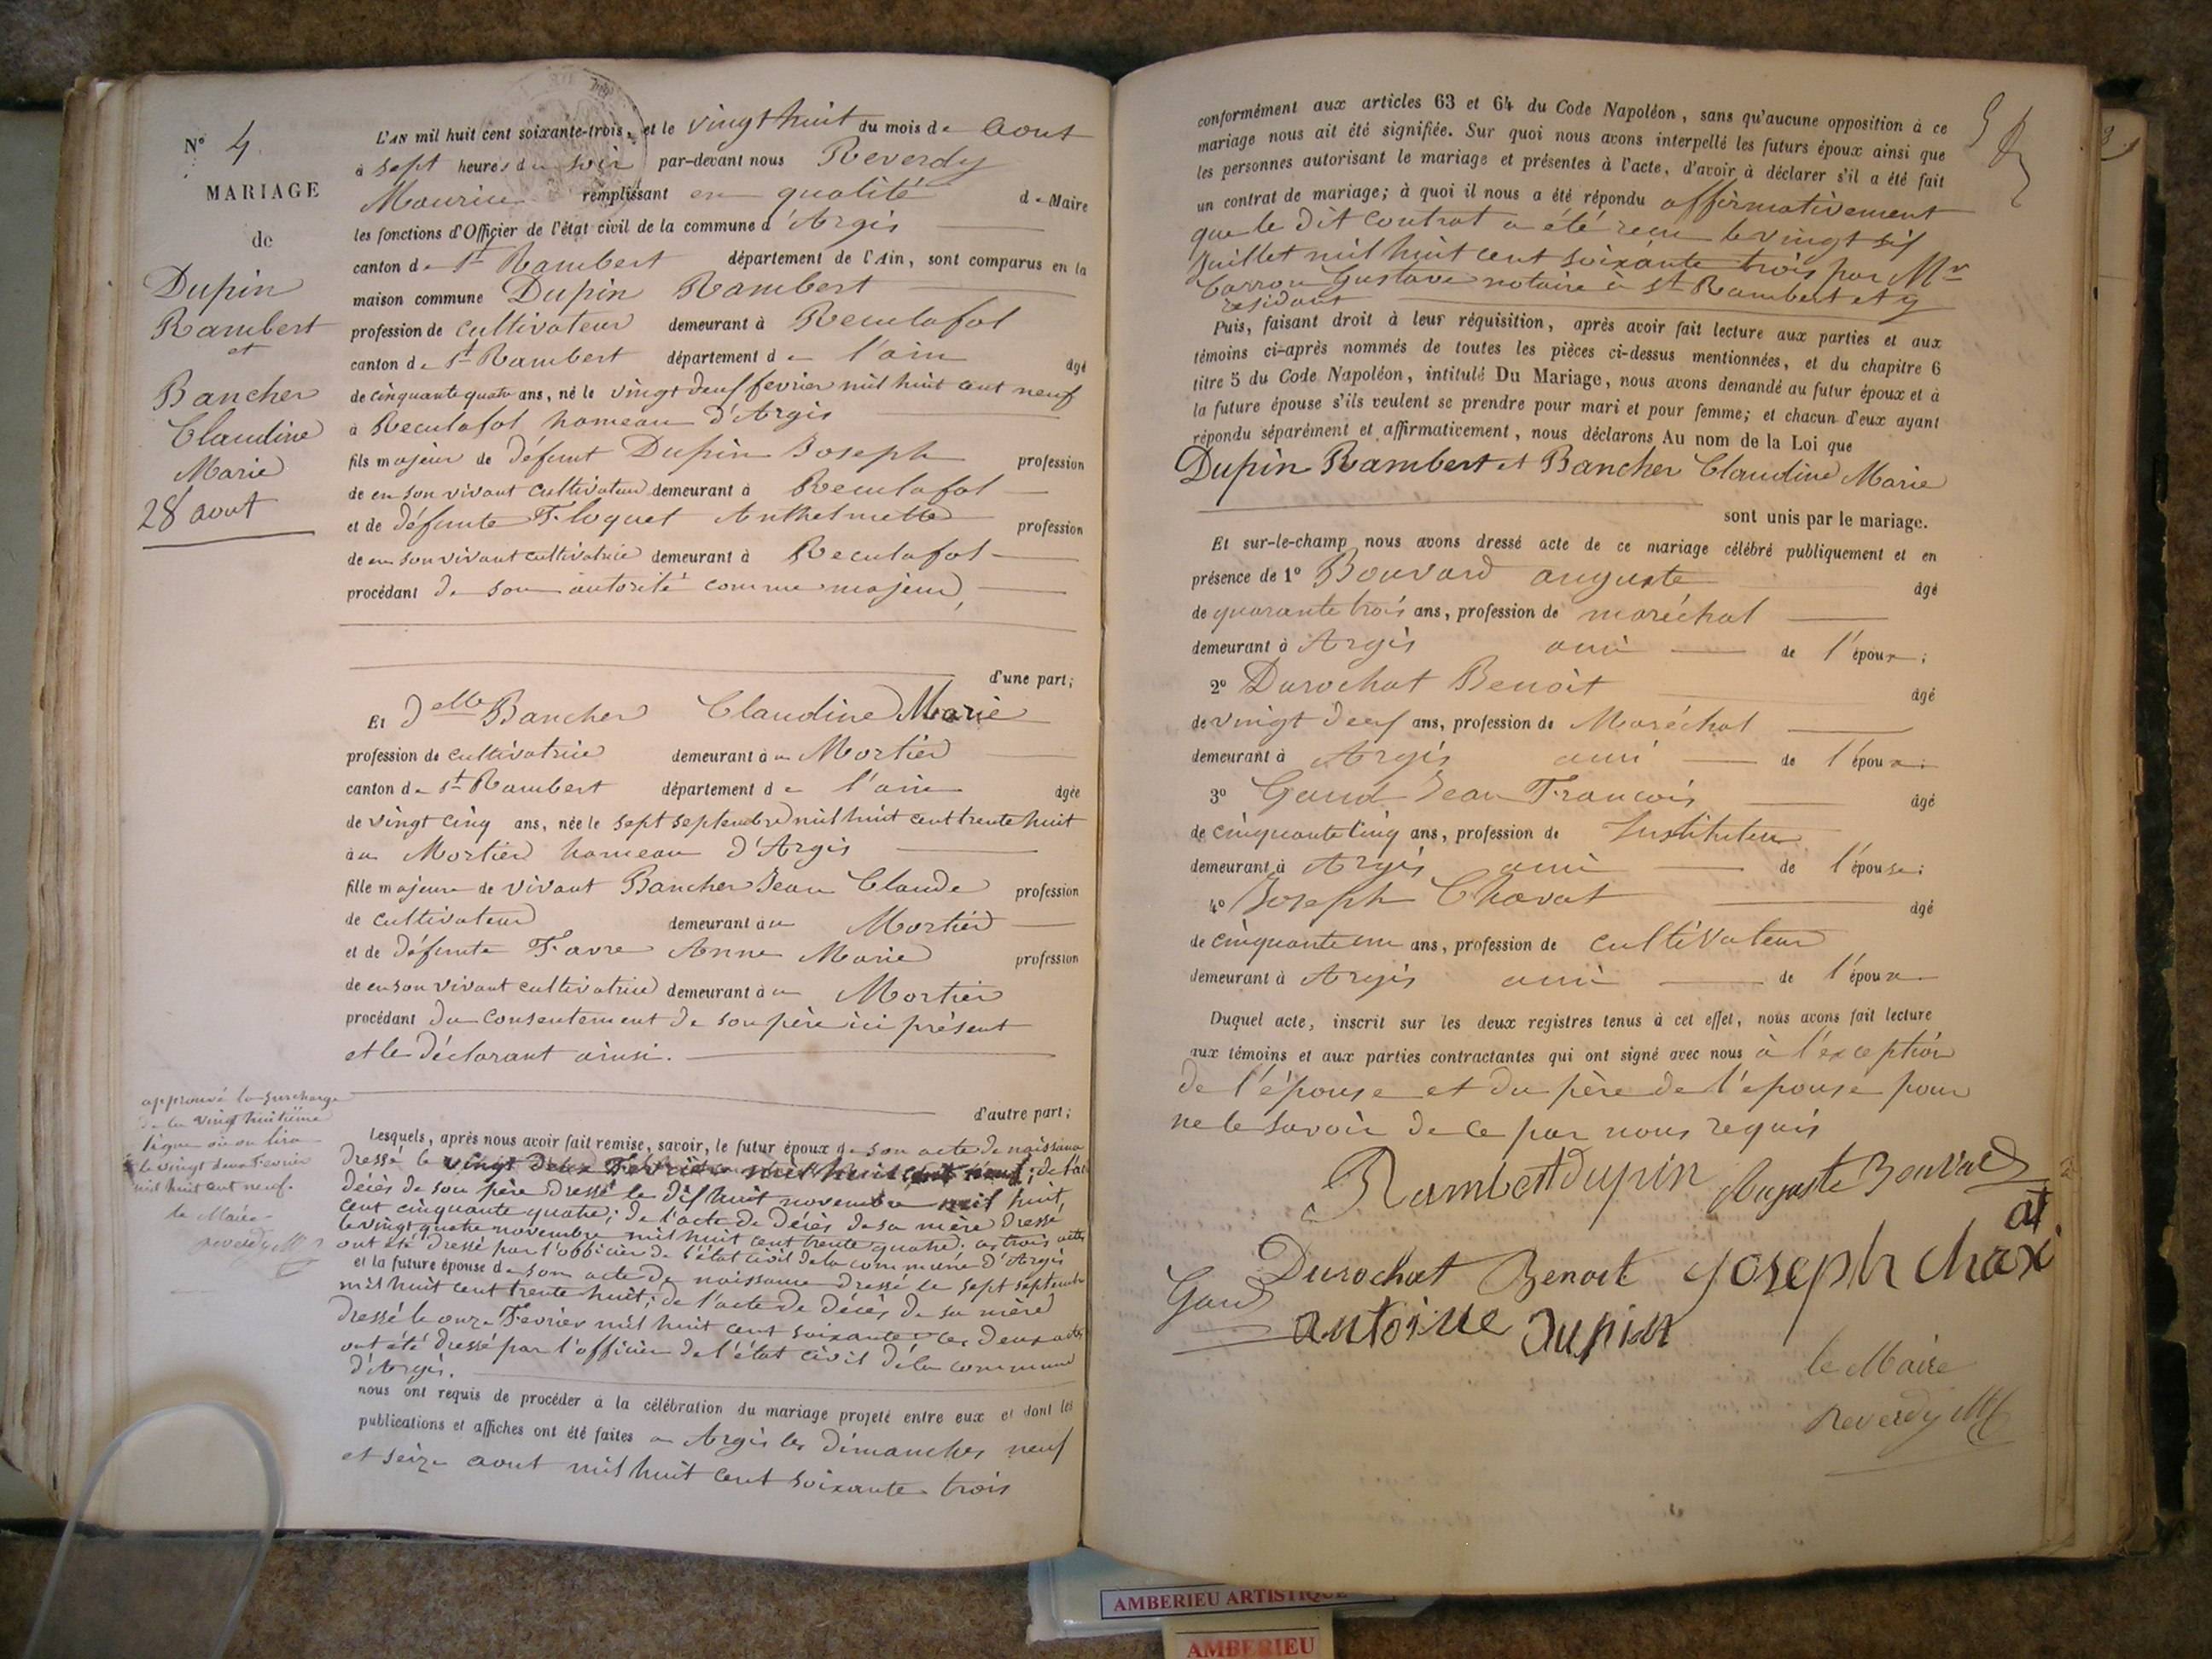 N° 4
MARIAGE
de
Dupin
Rambert
et
Bancher
Claudine
Marie
28 aout
L'AN mil huit cent soixante-trois, et le vingt huit du mois de aout
à sept heures du soir par-devant nous Reverdy
Maurice remplissant en qualité de Maire
les fonctions d'Officier de l'état civil de la commune d'Argis
canton de St Rambert département de l'Ain, sont comparus en la
maison commune Dupin Rambert
profession de cultivateur demeurant à Reculafol
canton de St Rambert département de l'ain âgé
de cinquante quatre ans, né le vingt deux fevrier mil huit cent neuf
à Reculafol hameau d'Argis
fils majeur de défunt Dupin Joseph profession
de en son vivant cultivateur demeurant à Reculafol
et de défunte Floquet Anthelmette profession
de en son vivant cultivatrice demeurant à Reculafol
procédant de son autorité comme majeur,
d'une part;
Et delle Bancher Claudine Marie
profession de cultivatrice demeurant au Mortier
canton de St Rambert département de l'ain âgée
de vingt cinq ans, née le sept septembre mil huit cent trente huit
au Mortier hameau d'Argis
fille majeure de vivant Bancher Jean Claude profession
de cultivateur demeurant au Mortier
et de défunte Favre Anne Marie profession
de en son vivant cultivatrice demeurant au Mortier
procédant du consentement de son père ici présent
et le déclarant ainsi.
d'autre part;
approuvé la surcharge
de la vingt huitième
ligne où on lira
le vingt deux Fevrier
mil huit cent neuf.
le Maire
reverdy M
Lesquels, après nous avoir fait remise, savoir, le futur époux de son acte de naissance
dressé le vingt deux Fevrier mil huit cent neuf; de l'acte
décès de son père dressé le dix huit novembre mil huit
cent cinquante quatre; de l'acte de décès de sa mère dressé
le vingt quatre novembre mil huit cent trente quatre. ces trois actes
ont été dressé par l'officier de l'état civil de la commune d'Argis
et la future épouse de son acte de naissance dressé le sept septembre
mil huit cent trente huit; de l'acte de décès de sa mère
dressé le onze Fevrier mil huit cent soixante ces deux actes
ont été dressé par l'officier de l'état civil de la commune
d'Argis.
nous ont requis de procéder à la célébration du mariage projeté entre eux et dont les
publications et affiches ont été faites à Argis les dimanches neuf
et seize aout mil huit cent soixante trois
conformément aux articles 63 et 64 du Code Napoléon, sans qu'aucune opposition à ce
mariage nous ait été signifiée. Sur quoi nous avons interpellé les futurs époux ainsi que
les personnes autorisant le mariage et présentes à l'acte, d'avoir à déclarer s'il a été fait
un contrat de mariage; à quoi il nous a été répondu affirmativement
que le dit contrat a été recu le vingt six
Juillet mil huit cent soixante trois par Mr
Carron Gustave notaire à St Rambert et y
résidant
Puis, faisant droit à leur réquisition, après avoir fait lecture aux parties et aux
témoins ci-après nommés de toutes les pièces ci-dessus mentionnées, et du chapitre 6
titre 5 du Code Napoléon, intitulé Du Mariage, nous avons demandé au futur époux et à
la future épouse s'ils veulent se prendre pour mari et pour femme; et chacun d'eux ayant
répondu séparément et affirmativement, nous déclarons Au nom de la Loi que
Dupin Rambert et Bancher Claudine Marie
sont unis par le mariage.
Et sur-le-champ nous avons dressé acte de ce mariage célébré publiquement et en
présence de 1° Bouvard auguste âgé
de quarante trois ans, profession de maréchal
demeurant à Argis ami de l'époux;
2° Durochat Benoit âgé
de vingt deux ans, profession de Maréchal
demeurant à Argis ami de l'époux;
3° Gaud Jean Francois âgé
de cinquante cinq ans, profession de Instituteur
demeurant à Argis ami de l'épouse;
4° Joseph Chavat âgé
de cinquante un ans, profession de cultivateur
demeurant à Argis ami de l'époux
Duquel acte, inscrit sur les deux registres tenus à cet effet, nous avons fait lecture
aux témoins et aux parties contractantes qui ont signé avec nous à l'exception
de l'épouse et du père de l'epouse pour
ne le savoir de ce par nous requis
Rambert dupin Auguste Bouvard
Durochat Benoit joseph chavat
Gaud
antoine dupin
le Maire
Reverdy M
AMBERIEU ARTISTIQUE
AMBERIEU